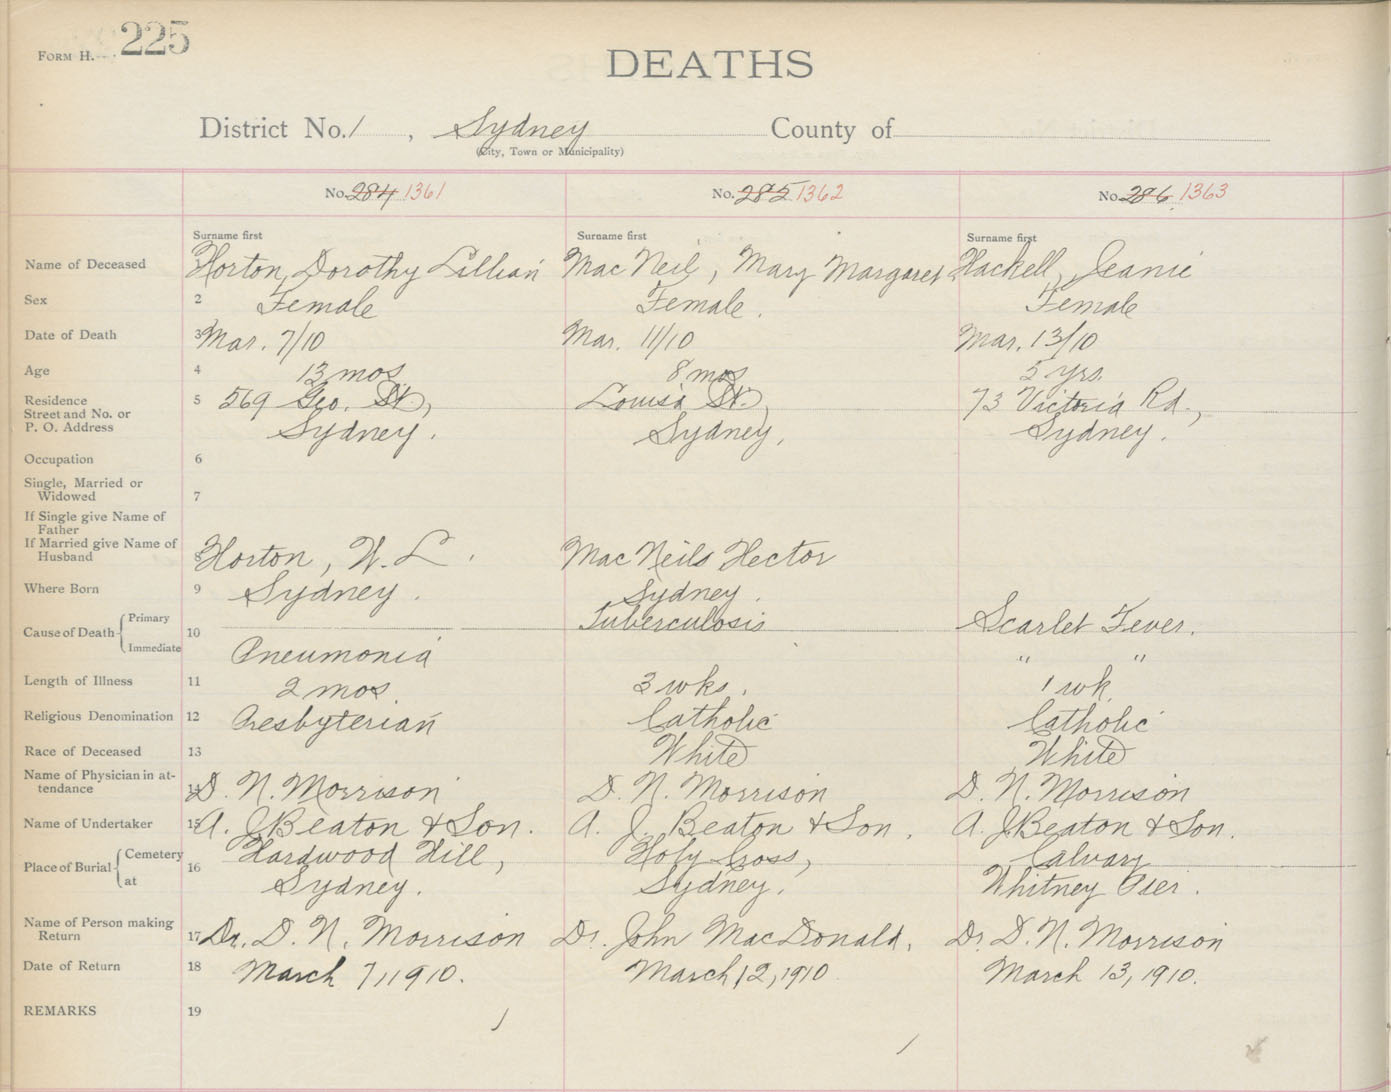 FORM H. 225
DEATHS
District No. 1, Sydney County of
(City, Town or Municipality)
No. 284 1361 No. 285 1362 No. 286 1363
Surname first Surname first Surname first
Name of Deceased 1 Horton, Dorothy Lillian Mac Neil, Mary Margaret Hackell, Jeanie
Sex 2 Female Female. Female
Date of Death 3 Mar. 7/10 Mar. 11/10 Mar. 13/10
Age 4 13 mos 8 mos 5 yrs.
Residence 5 569 Geo. St., Louisa St., 73 Victoria Rd.,
Street and No. or
P. O. Address Sydney. Sydney, Sydney.
Occupation 6
Single, Married or
Widowed 7
If Single give Name of
Father
If Married give Name of
Husband 8 Horton, W. L. Mac Neils Hector
Where Born 9 Sydney. Sydney.
Cause of Death Primary 10 Tuberculosis Scarlet Fever.
Immediate Pneumonia " "
Length of Illness 11 2 mos. 3 wks. 1 wk.
Religious Denomination 12 Presbyterian Catholic Catholic
Race of Deceased 13 White White
Name of Physician in at-
tendance 14 D. N. Morrison D. N. Morrison D. N. Morrison
Name of Undertaker 15 A. J. Beaton & Son. A. J. Beaton & Son. A. J. Beaton & Son.
Place of Burial Cemetery 16 Hardwood Hill, Holy Cross, Calvary
at Sydney. Sydney. Whitney Pier.
Name of Person making
Return 17 Dr. D. N. Morrison Dr. John MacDonald. Dr. D. N. Morrison
Date of Return 18 March 7, 1910. March 12, 1910 March 13, 1910.
REMARKS 19